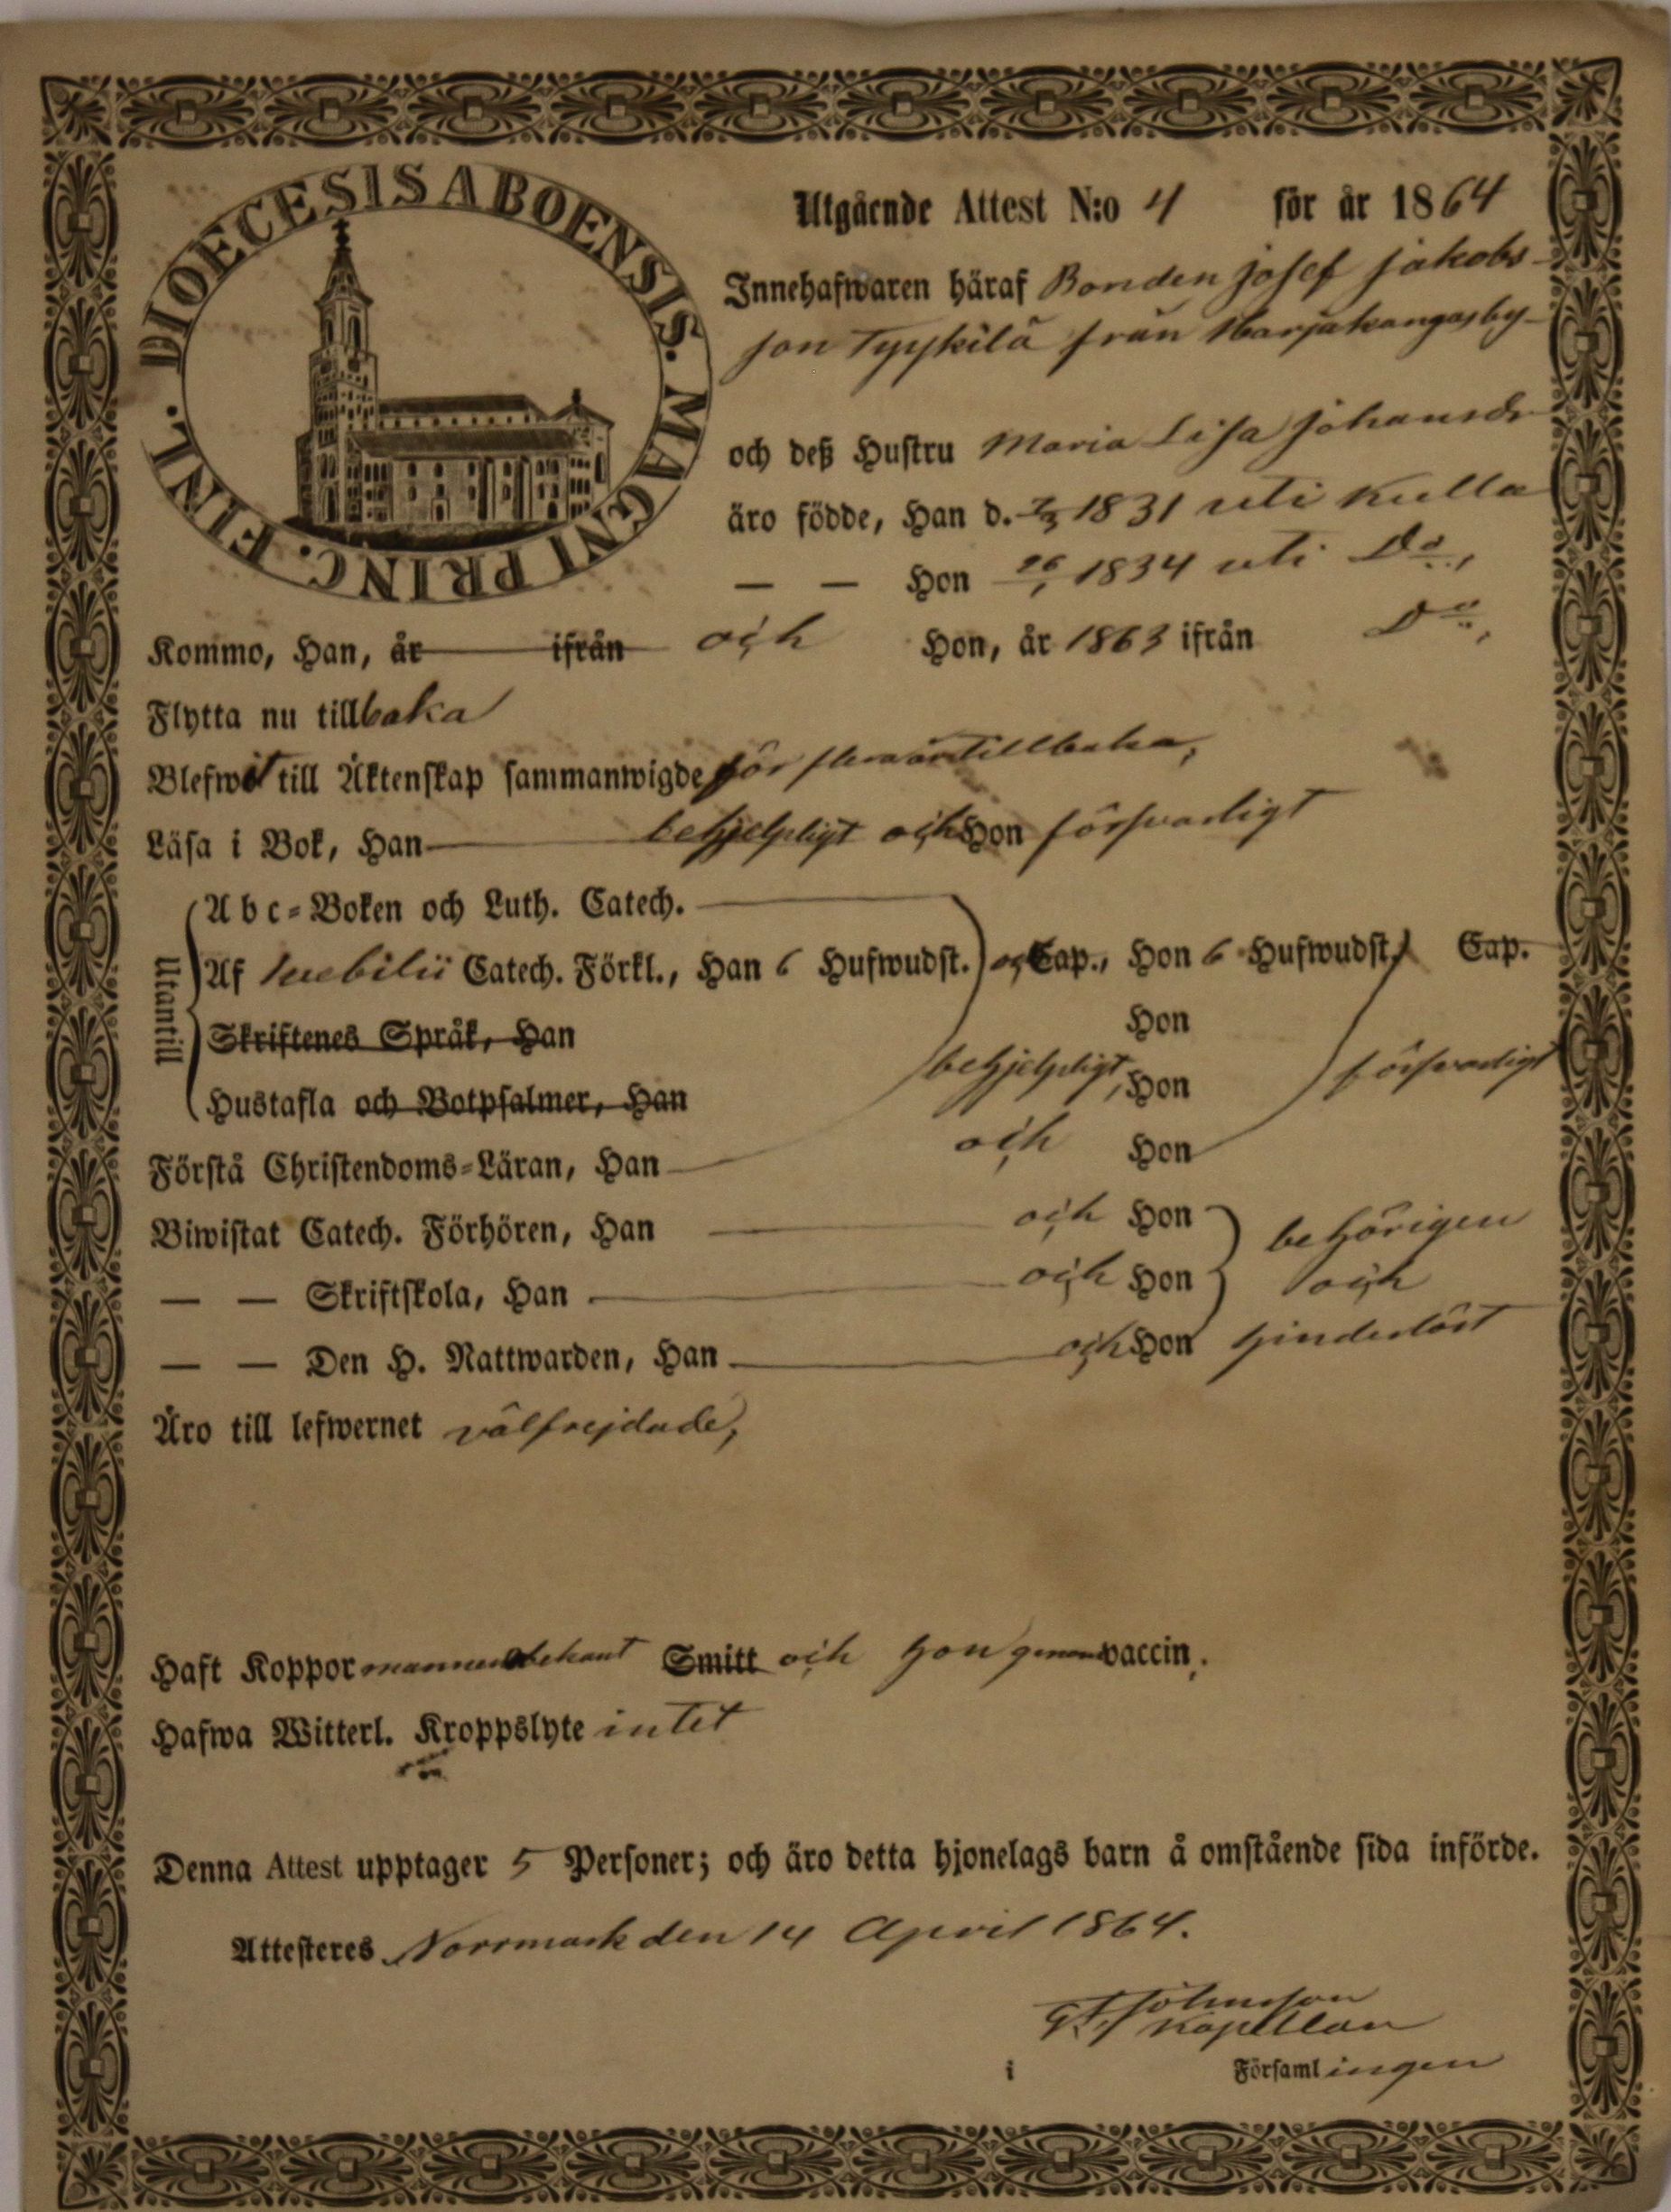 DIOECESIS ABOENSIS. MAGNI PRINC. FINL.
Utgående Attest N:o 4 för år 1864
Innehafwaren häraf Bonden Josef Jakobs-
son Tyykilä från Harjakangasby-
och deß Hustru Maria Lisa Johansdr
äro födde, Han d. 1831 uti Kulla
— — Hon 26/1 1834 uti Do,
Kommo, Han, år ifrån och Hon, år 1863 ifrån Do,
Flytta nu tillbaka
Blefwit till Äktenskap sammanwigde för flera år tillbaka,
Läsa i Bok, Han behjelpligt och Hon försvarligt
Utantill
Abc-Boken och Luth. Catech.
Af Catech. Förkl., Han 6 Hufwudst. och Cap., Hon 6 Hufwudst. Cap.
Skriftenes Språk, Han Hon
Hustafla och Botpsalmer, Han behjelpligt, Hon försvarligt
Förstå Christendoms-Läran, Han och Hon
Biwistat Catech. Förhören, Han och Hon behörigen
— — Skriftskola, Han och Hon och
— — Den H. Nattwarden, Han och Hon hinderlöst
Äro till lefwernet välfrejdade,
Haft Koppor mannen obekant Smitt och hon genom vaccin.
Hafwa Witterl. Kroppslyte intet
Denna Attest upptager 5 Personer; och äro detta hjonelags barn å omstående sida införde.
Attesteres Norrmark den 14 April 1864.
Johnsson
Kapellan
i Församlingen